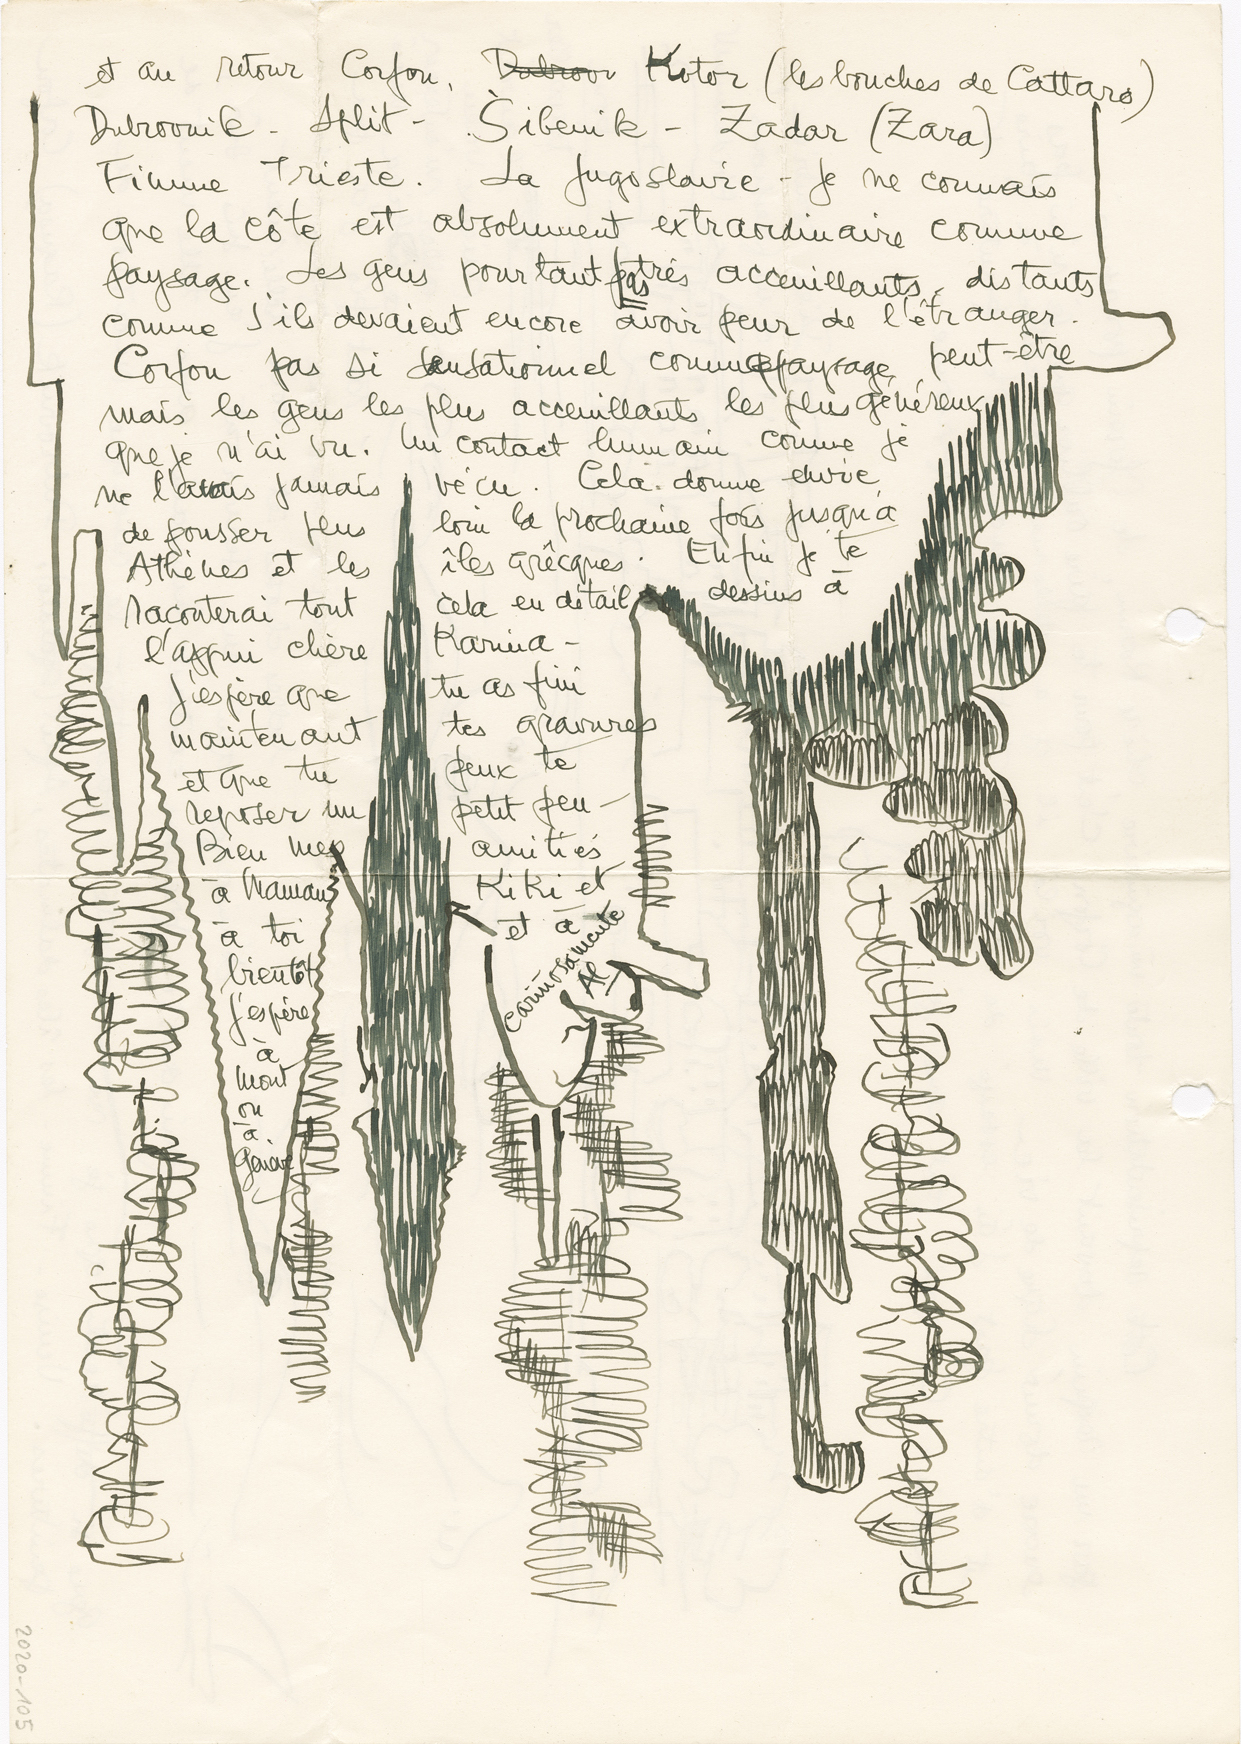 et au retour Corfou, Dubrov Kotor (les bouches de Cattaro)
Dubrovnik - Split - Šibenik - Zadar (Zara)
Fiume Trieste. La Jugoslavie - je ne connais
que la côte est absolument extraordinaire comme
paysage. Les gens pourtant pas très acceuillants, distants
comme s'ils devaient encore avoir peur de l'étranger.
Corfou pas si sensationnel comme paysage, peut-être
mais les gens les plus acceuillants les plus généreux
que je n'ai vu. Un contact humain comme je
ne l'avais jamais vécu. Cela donne envie
de pousser plus loin la prochaine fois jusqu'à
Athènes et les îles grècques. Enfin je te
raconterai tout cela en détail dessins à
l'appui chère Karina -
J'espère que tu as fini
maintenant tes gravures
et que tu peux te
reposer un petit peu -
Bien mes amitiés
à Maman Kiki et
à toi et à
bientôt
j'espère
à
mont
ou
à
Genève
cariñosamente
Al
2020-105